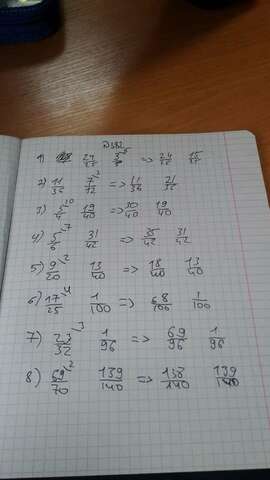 №382
1) 24/25 3/5 ⁵ => 24/25 15/25
2) 11/36 7/12 ³ => 11/36 21/36
3) 3/4 ¹⁰ 19/40 => 30/40 19/40
4) 5/6 ⁷ 31/42 => 35/42 31/42
5) 9/20 ² 13/40 => 18/40 13/40
6) 17/25 ⁴ 1/100 => 68/100 1/100
7) 23/32 ³ 1/96 => 69/96 1/96
8) 69/70 ² 139/140 => 138/140 139/140